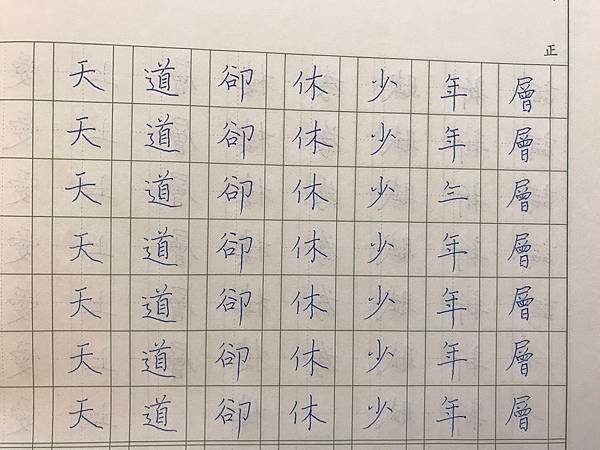 正
層層層層層層層
年年三年年年年
少少少少少少少
休休休休休休休
卻卻卻卻卻卻卻
道道道道道道道
天天天天天天天